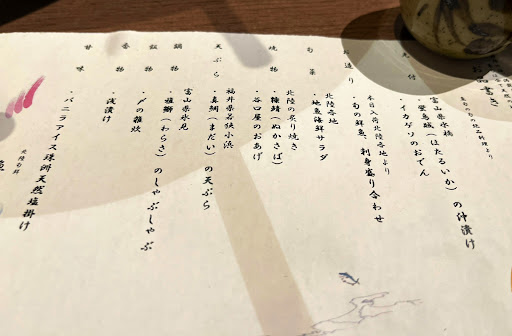 書き
先付
富山県水橋
・蛍烏賊(ほたるいか)の沖漬け
・イカゲソのおでん
お造り
本日入荷北陸各地より
・旬の鮮魚、刺身盛り合わせ
旬菜
北陸各地
・地魚海鮮サラダ
焼物
北陸の炙り焼き
・糠鯖(ぬかさば)
・谷口屋のおあげ
天ぷら
福井県若狭小浜
・真鯛(まだい)の天ぷら
鍋物
富山県氷見
・稚鰤(わらさ)のしゃぶしゃぶ
飯物
・〆の雑炊
香物
・浅漬け
甘味
・バニラアイス珠洲天然塩掛け
北陸旬鮮